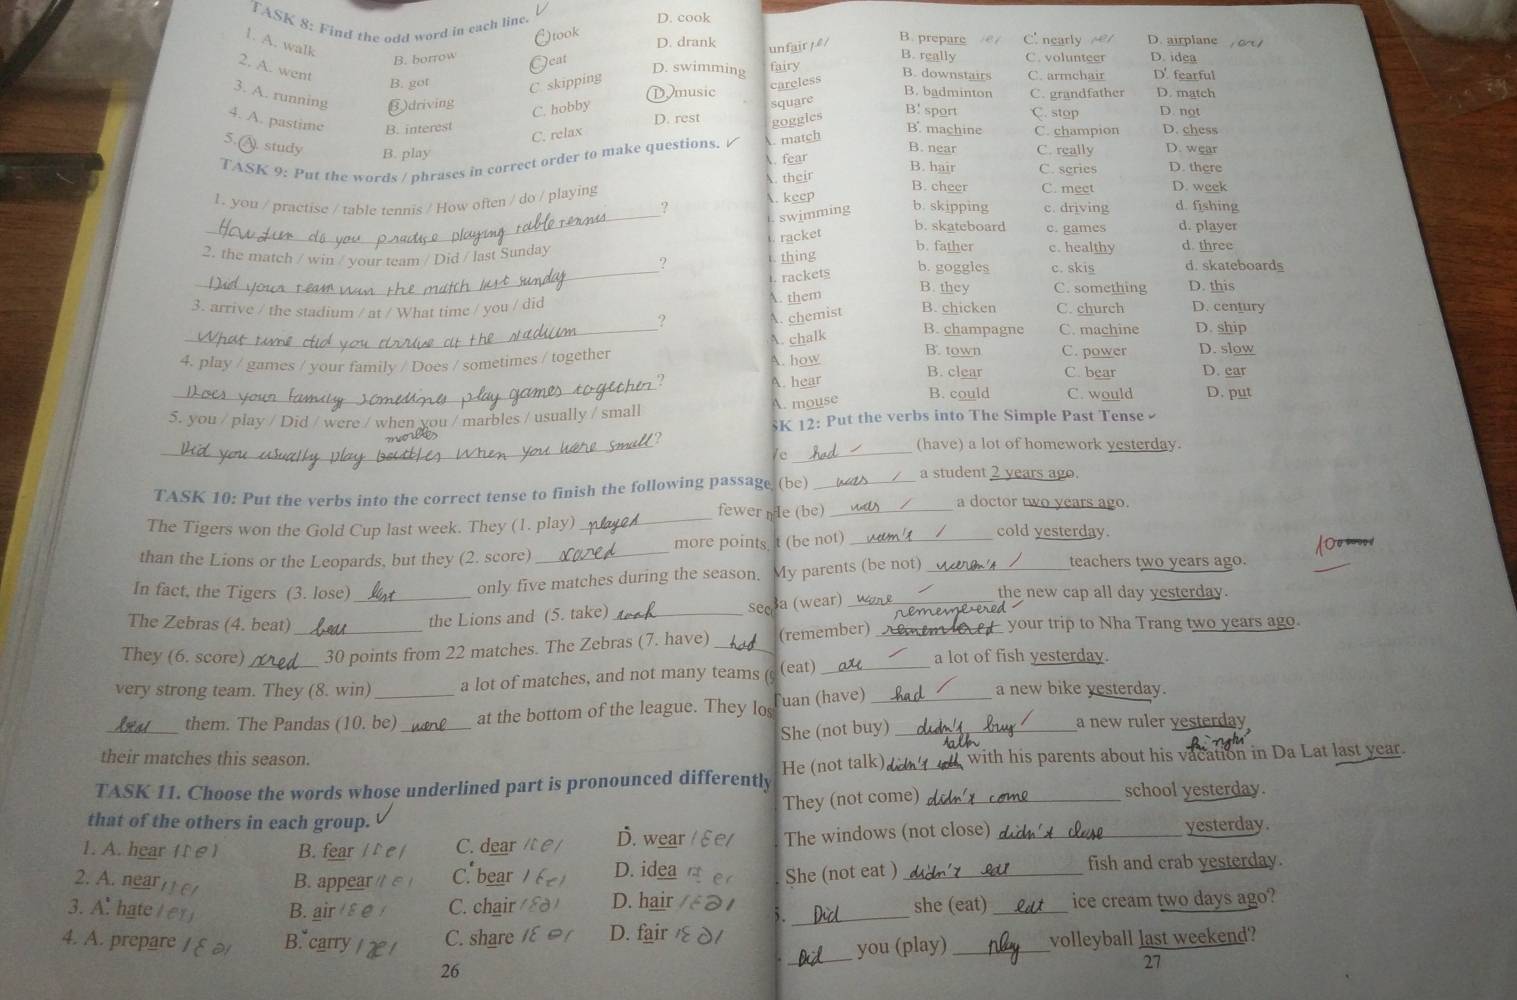 TASK 8: Find the odd word in each line.
1. A. walk B. borrow C. took D. cook
2. A. went B. got C. eat D. drank
3. A. running B. driving C. skipping D. swimming
4. A. pastime B. interest C. hobby D. music
5. A. study B. play C. relax D. rest
TASK 9: Put the words / phrases in correct order to make questions.
1. you / practise / table tennis / How often / do / playing
do you practise playing table tennis ?
2. the match / win / your team / Did / last Sunday
Did your team win the match last sunday ?
3. arrive / the stadium / at / What time / you / did
What time did you arrive at the stadium ?
4. play / games / your family / Does / sometimes / together
Does your family sometimes play games together ?
5. you / play / Did / were / when you / marbles / usually / small
marbles
Did you usually play when you were small?
TASK 10: Put the verbs into the correct tense to finish the following passage
The Tigers won the Gold Cup last week. They (1. play) played fewer
than the Lions or the Leopards, but they (2. score) scored more points.
In fact, the Tigers (3. lose) lost only five matches during the season.
The Zebras (4. beat) beat the Lions and (5. take) took sec
They (6. score) scred 30 points from 22 matches. The Zebras (7. have) had
very strong team. They (8. win) a lot of matches, and not many teams
beat them. The Pandas (10. be) were at the bottom of the league. They los
their matches this season.
TASK 11. Choose the words whose underlined part is pronounced differently
that of the others in each group.
1. A. hear B. fear C. dear D. wear
2. A. near B. appear C. bear D. idea
3. A. hate B. air C. chair D. hair
4. A. prepare B. carry C. share D. fair
26
unfair B. prepare C. nearly D. airplane
fairy B. really C. volunteer D. idea
careless B. downstairs C. armchair D. fearful
square B. badminton C. grandfather D. match
goggles B. sport C. stop D. not
. match B. machine C. champion D. chess
. fear B. near C. really D. wear
. their B. hair C. series D. there
. keep B. cheer C. meet D. week
. swimming b. skipping c. driving d. fishing
. racket b. skateboard c. games d. player
. thing b. father c. healthy d. three
. rackets b. goggles c. skis d. skateboards
A. them B. they C. something D. this
A. chemist B. chicken C. church D. century
A. chalk B. champagne C. machine D. ship
A. how B. town C. power D. slow
A. hear B. clear C. bear D. ear
A. mouse B. could C. would D. put
SK 12: Put the verbs into The Simple Past Tense
e had (have) a lot of homework yesterday.
(be) was a student 2 years ago.
He (be) was a doctor two years ago.
t (be not) wasn't cold yesterday.
My parents (be not) weren't teachers two years ago.
10
a (wear) wore the new cap all day yesterday.
(remember) remembered your trip to Nha Trang two years ago.
(eat) ate a lot of fish yesterday.
Tuan (have) had a new bike yesterday.
She (not buy) didn't buy a new ruler yesterday
talk
He (not talk) didn't with his parents about his vacation in Da Lat last year.
They (not come) didn't come school yesterday.
The windows (not close) didn't close yesterday.
She (not eat ) didn't eat fish and crab yesterday.
Did she (eat) eat ice cream two days ago?
Did you (play) play volleyball last weekend?
27